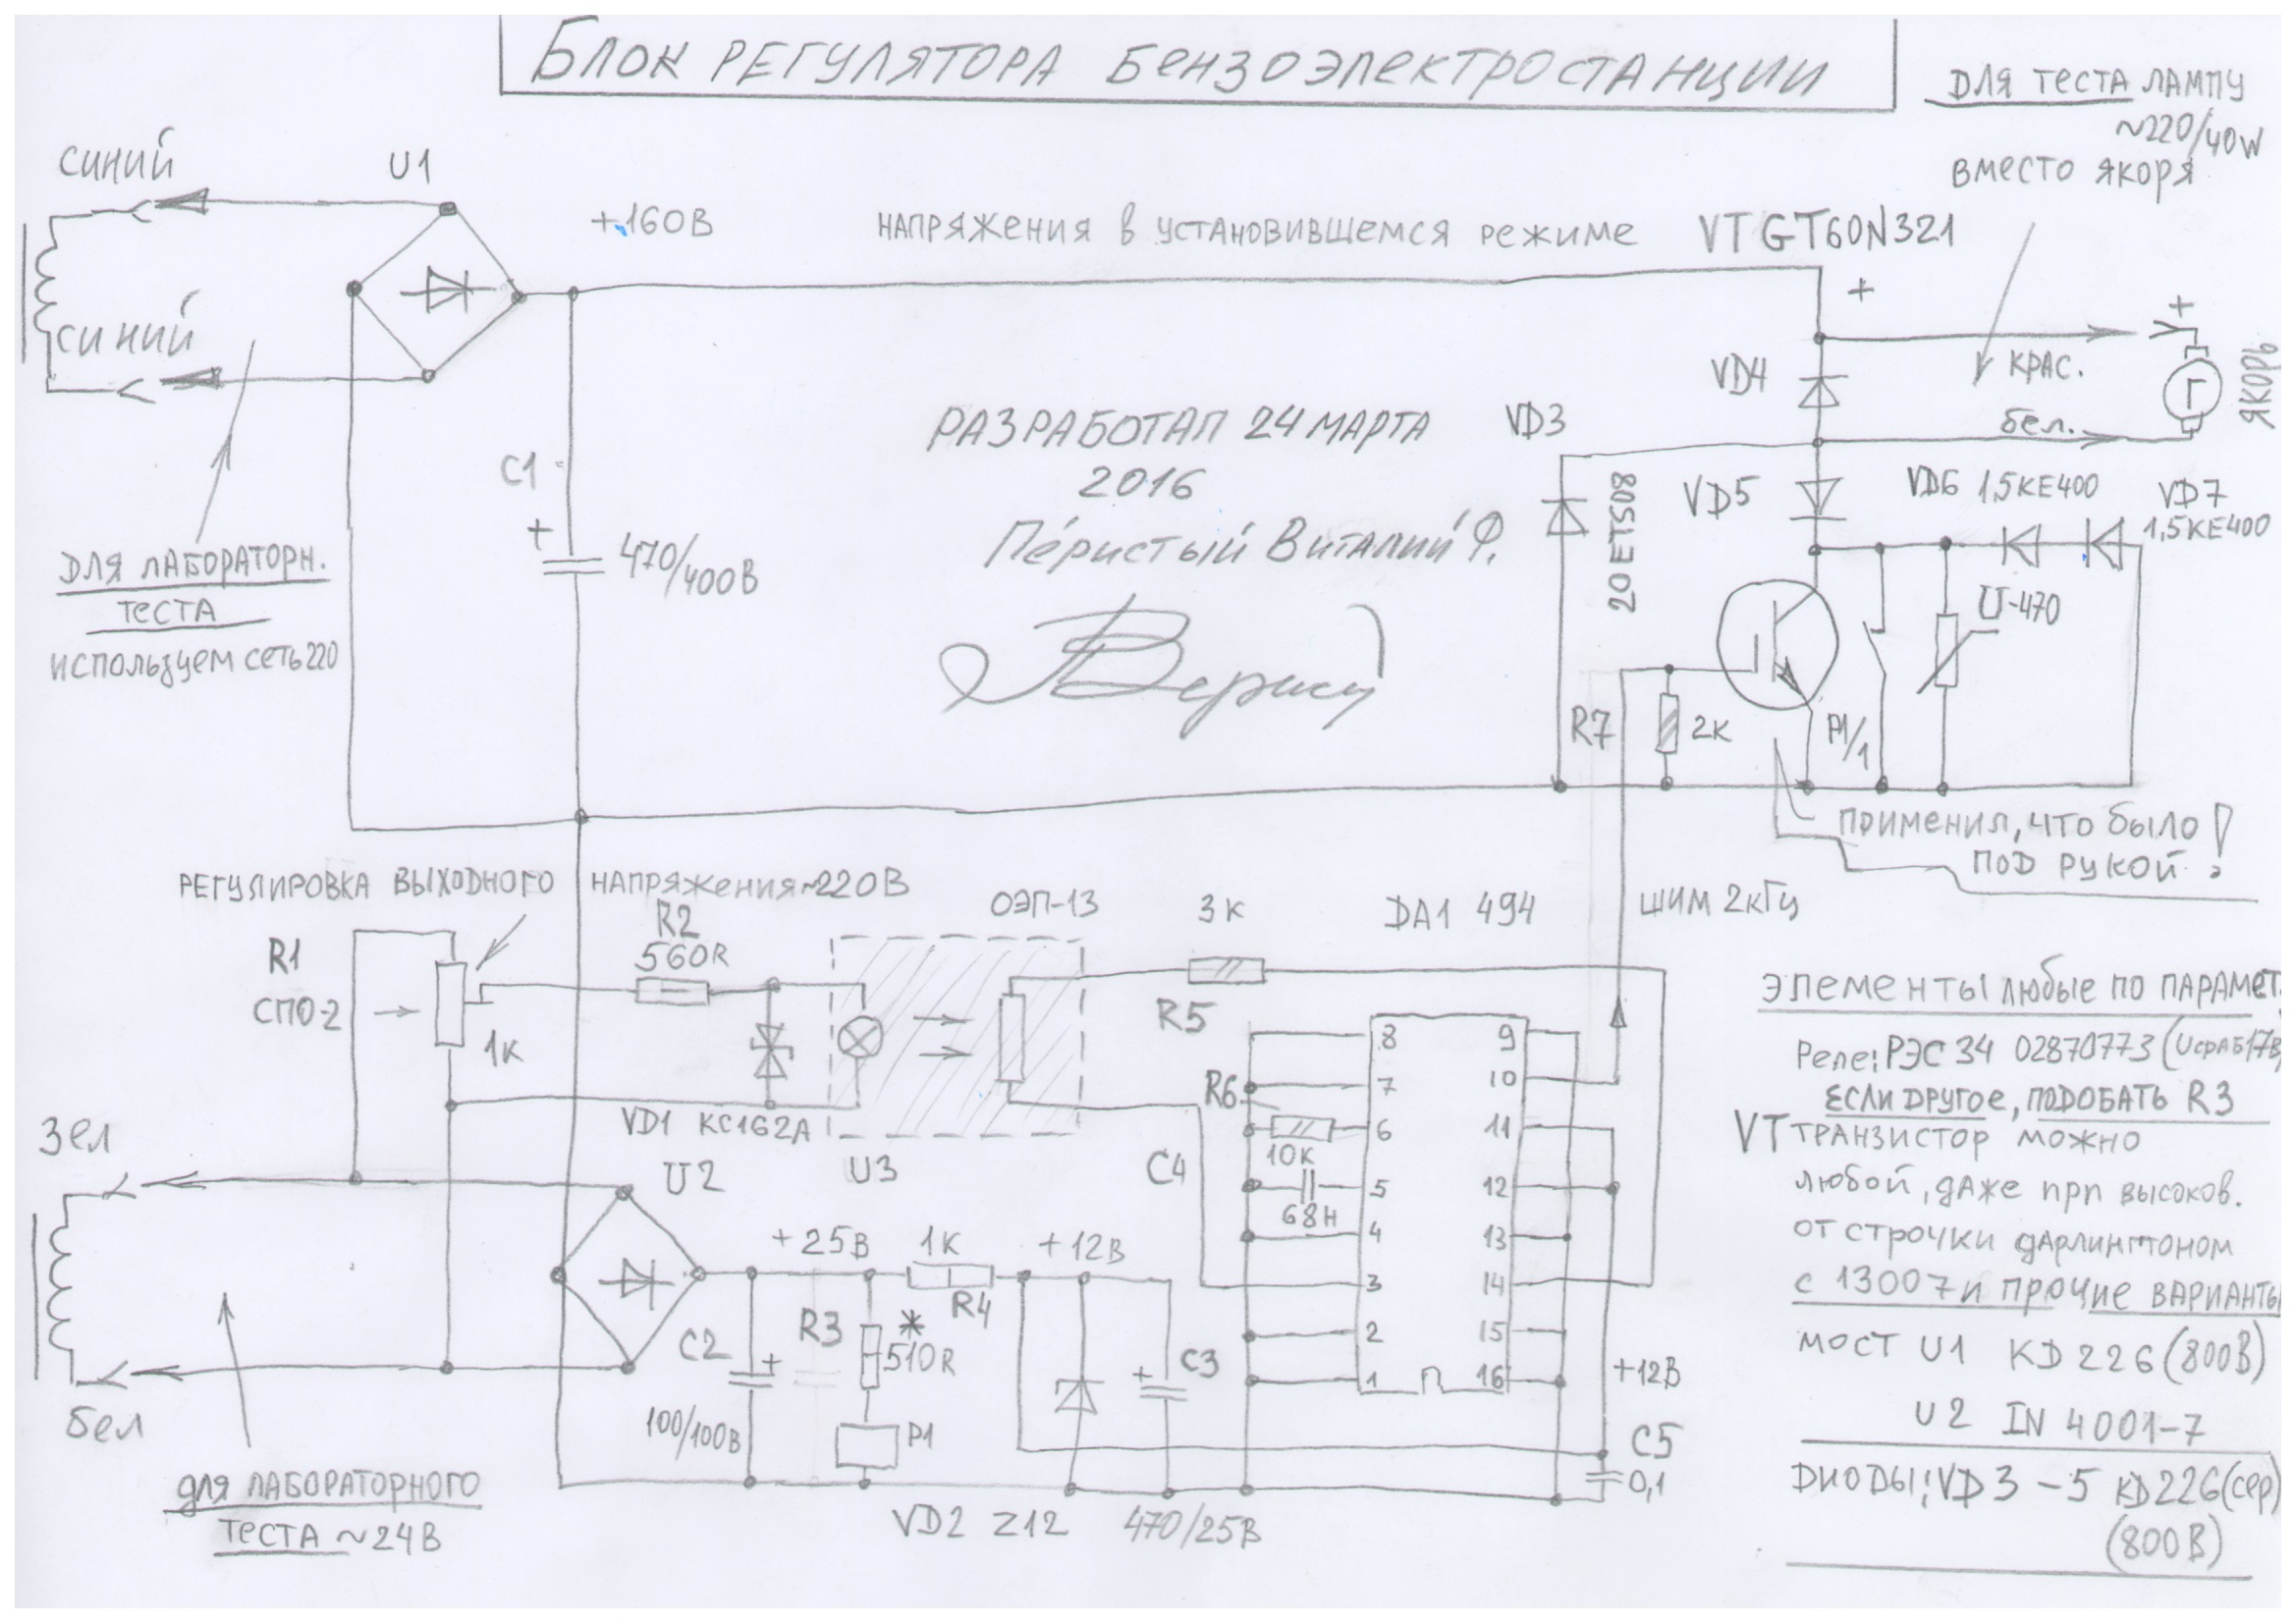 БЛОК РЕГУЛЯТОРА БЕНЗОЭЛЕКТРОСТАНЦИИ
ДЛЯ ТЕСТА ЛАМПУ
~220/40W
ВМЕСТО ЯКОРЯ
СИНИЙ
U1
+160В
НАПРЯЖЕНИЯ В УСТАНОВИВШЕМСЯ РЕЖИМЕ
VT GT60N321
+
+
СИНИЙ
VD4
КРАС.
Г
ЯКОРЬ
РАЗРАБОТАЛ 24 МАРТА
2016
Перистый Виталий Ф.
VD3
бел.
C1
+
470/400В
20ETS08
VD5
VD6 1,5KE400
VD7
1,5KE400
ДЛЯ ЛАБОРАТОРН.
ТЕСТА
ИСПОЛЬЗУЕМ СЕТЬ 220
U-470
R7
2К
P1/1
ПРИМЕНИЛ, ЧТО БЫЛО
ПОД РУКОЙ!
РЕГУЛИРОВКА ВЫХОДНОГО НАПРЯЖЕНИЯ ~220В
R1
СПО-2
1К
R2
560R
ОЭП-13
3К
R5
DA1 494
ШИМ 2кГц
VD1 КС162А
U3
8
7
6
5
4
3
2
1
9
10
11
12
13
14
15
16
R6
10К
C4
68Н
ЭЛЕМЕНТЫ ЛЮБЫЕ ПО ПАРАМЕТ.
Реле: РЭС 34 02870773 (Uсраб 17В)
ЕСЛИ ДРУГОЕ, ПОДОБАТЬ R3
VT ТРАНЗИСТОР МОЖНО
ЛЮБОЙ, ДАЖЕ ПРП ВЫСОКОВ.
ОТ СТРОЧКИ ДАРЛИНГТОНОМ
С 13007 И ПРОЧИЕ ВАРИАНТЫ
МОСТ U1 KD 226 (800В)
U2 IN 4001-7
ДИОДЫ: VD3-5 KD226 (сер)
(800В)
Зел
бел
U2
+25В
1К
R4
+12В
C2
+
100/100В
R3
*
510R
P1
+
C3
VD2 Z12
470/25В
+12В
C5
0,1
для ЛАБОРАТОРНОГО
ТЕСТА ~24В